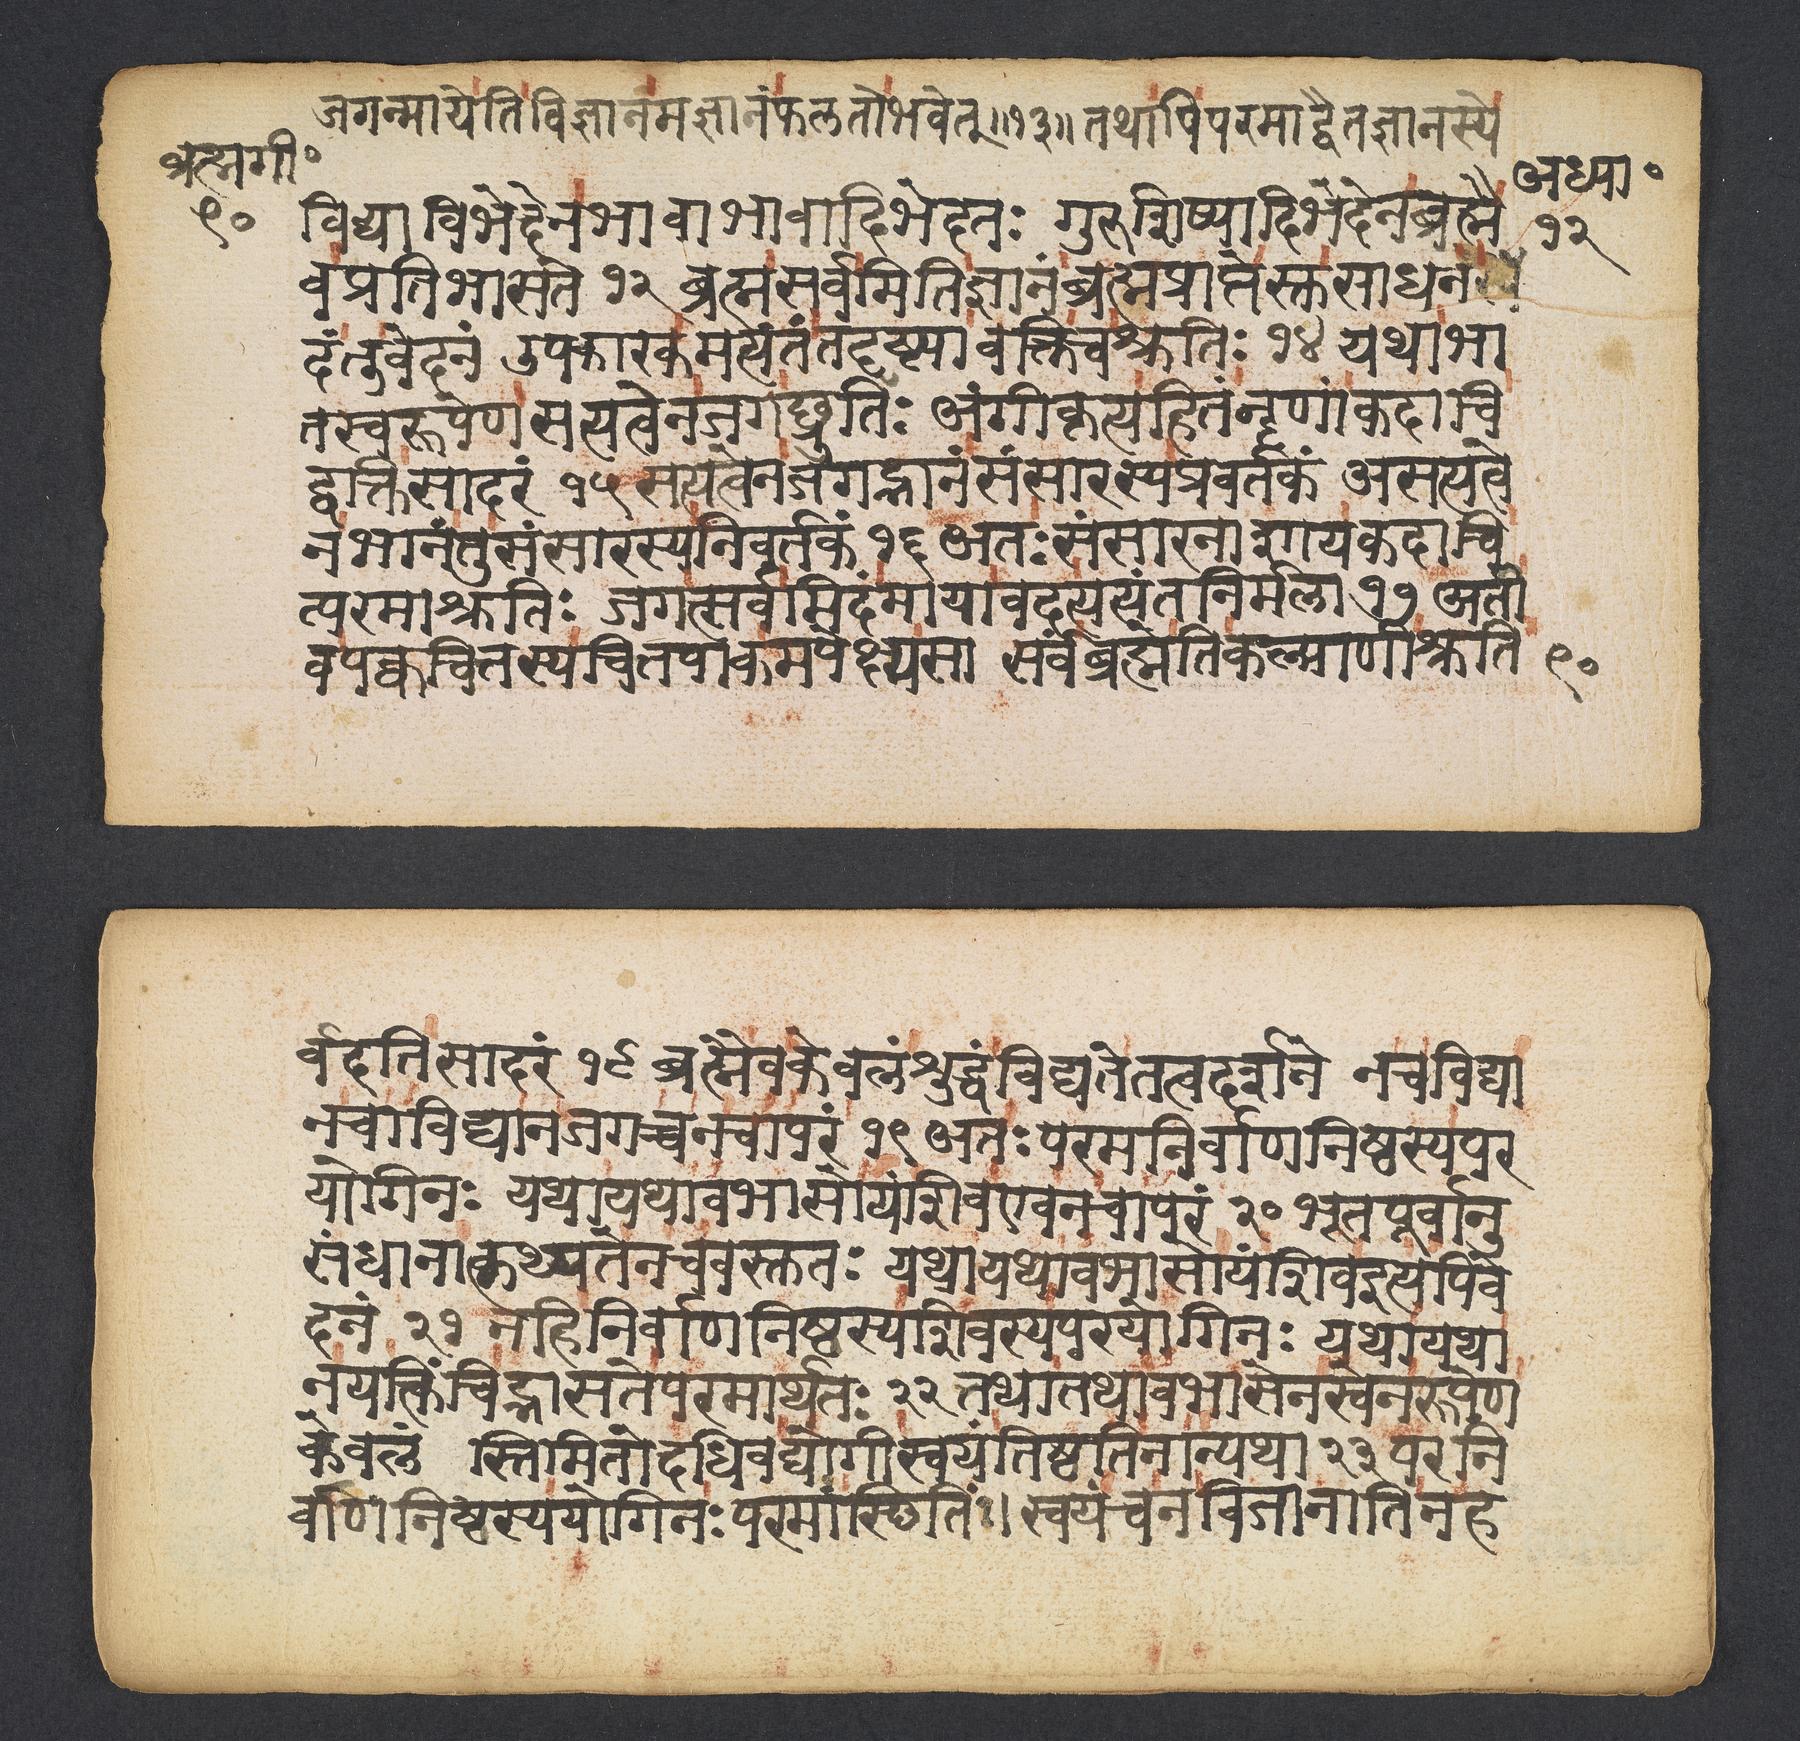 जगन्मायेतिविज्ञानमज्ञानंफलतोभवेत्॥१३॥तथापिपरमाद्वैतज्ञानस्ये
आत्मगी॰
९०
अध्या॰
१२
विद्याविभेदेनभावाभावादिभेदतः गुरुशिष्यादिभेदेनब्रह्मै
वप्रतिभासते १२ ब्रह्मसर्वमितिज्ञानंब्रह्मप्राप्तेस्तसाधनं
दंतुवेदनं उपकारकमत्यंतंतदृष्ट्यावक्तिवश्रुतिः १४ यथाभा
तस्वरूपेणसत्यत्वेनजगछ्रुतिः अंगीकृत्यहितंनृणांकदाचि
द्वक्तिसादरं १५ सत्यत्वेनजगद्भानंसंसारस्यप्रवर्तकं असत्यत्वे
नभानंतुसंसारस्यनिवर्तकं १६ अतःसंसारनाशायकदाचि
त्परमाश्रुतिः जगत्सर्वमिदंमायावदत्यत्यंतनिर्मला १७ अती
वपक्वचितस्यचितपाकमपेक्ष्यसा सर्वंब्रह्मेतिकल्याणीश्रुति
९०
र्वदतिसादरं १८ ब्रह्मैवकेवलंशुद्धंविद्यतेतत्वदर्शने नचविद्या
नचाविद्यानजगच्चनचापरं १९ अतःपरमनिर्वाणनिष्ठस्यपर
योगिनः यथायथावभासोयंशिवएवनचापरं २० भूतपूर्वानु
संधानात्कथ्यतेनचवस्ततः यथायथावभासोयंशिवइत्यपिवे
दनं २१ नहिनिर्वाणनिष्ठस्यशिवस्यपरयोगिनः यथायथा
नयत्किंचिद्भासतेपरमार्थतः २२ तथातथावभासेनस्वेनरूपेण
केवलं स्तिमितोदधिवद्योगीस्वयंतिष्ठतिनान्यथा २३ परनि
र्वाणनिष्ठस्ययोगिनःपरमांस्छितिं।।स्वयंचनविजानातिनह